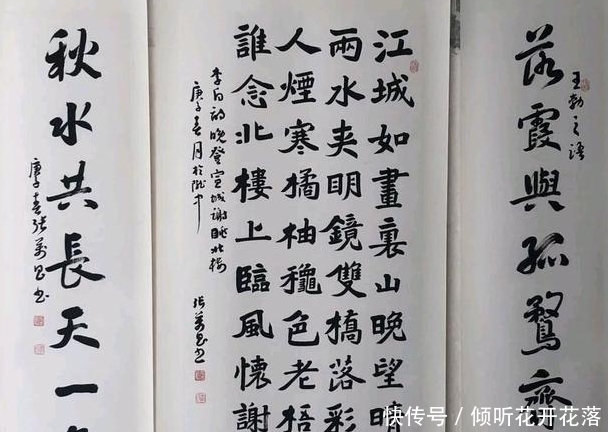 落霞與孤鶩齊
王勃之語
江城如畫裏山晚望晴
兩水夾明鏡雙橋落彩
人煙寒橘柚穐色老梧
誰念北樓上臨風懷謝
李白詩晚登宣城謝眺北樓
庚子春月於隴中
張萬昌書
秋水共長天一
庚子春張萬昌書
快传号／倾听花开花落